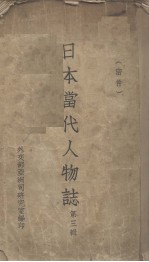 (密件)
日本當代人物誌
第三輯
外交部亞洲司研究室編印